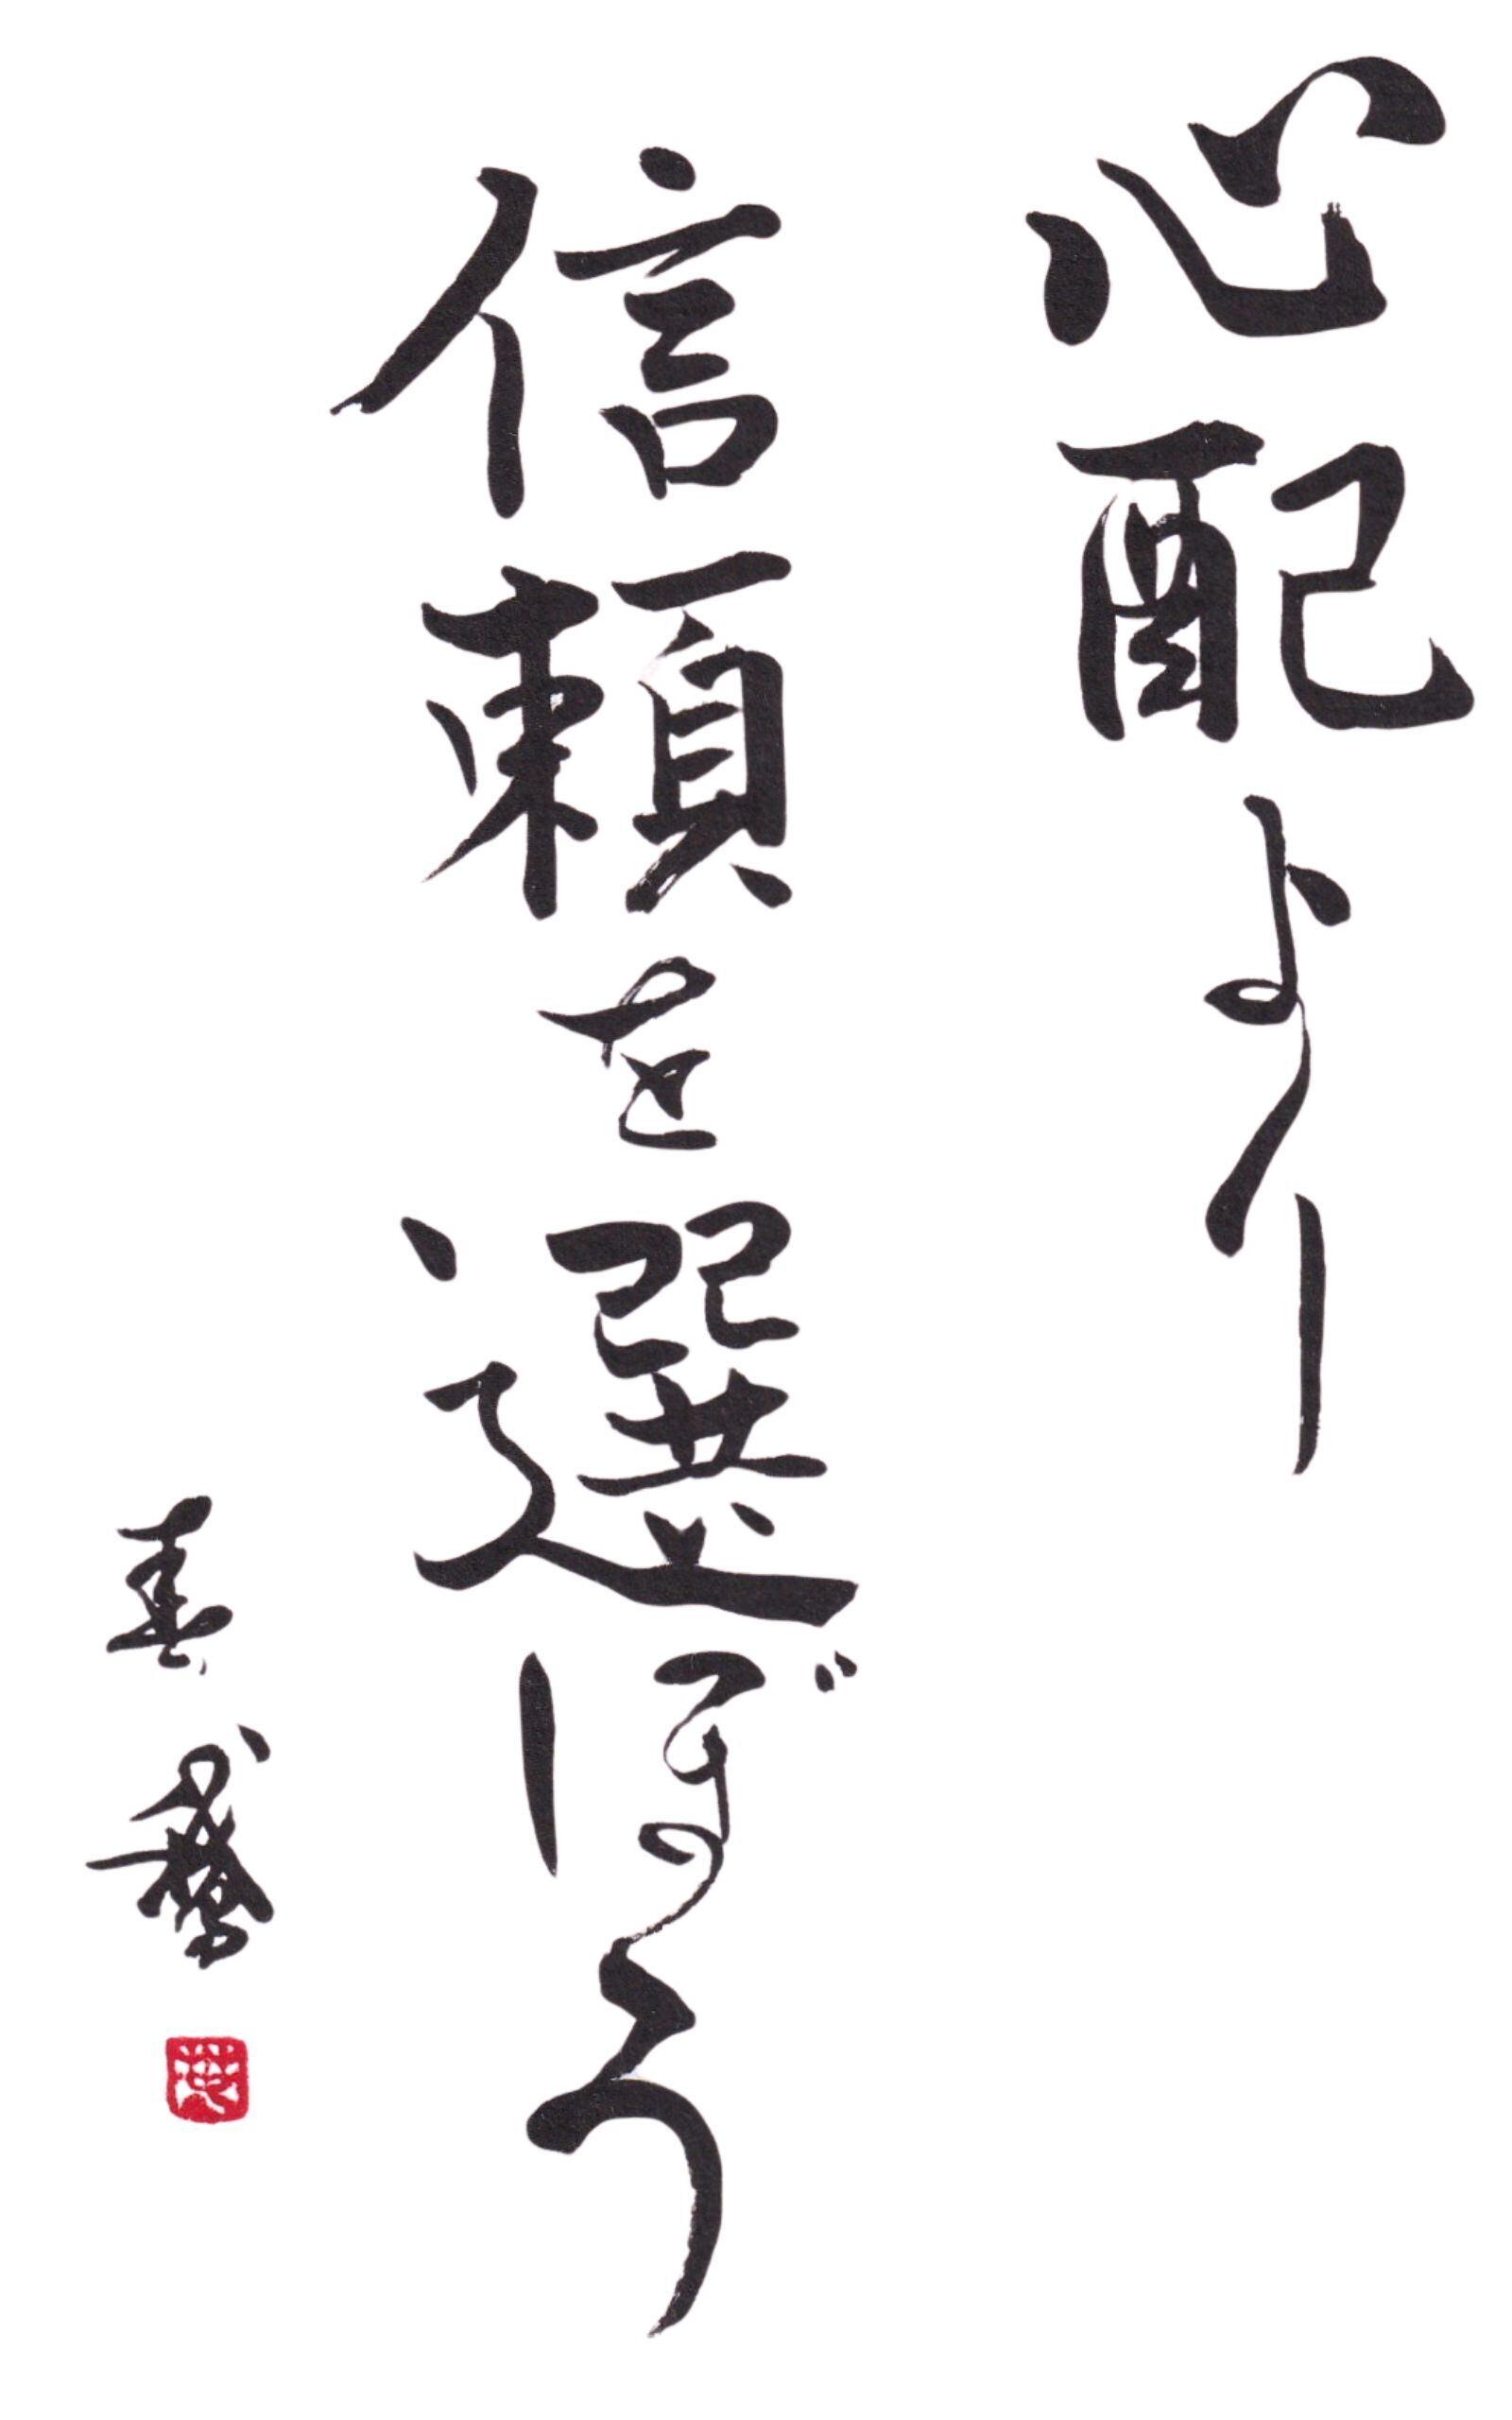 心配より
信頼を選ぼう